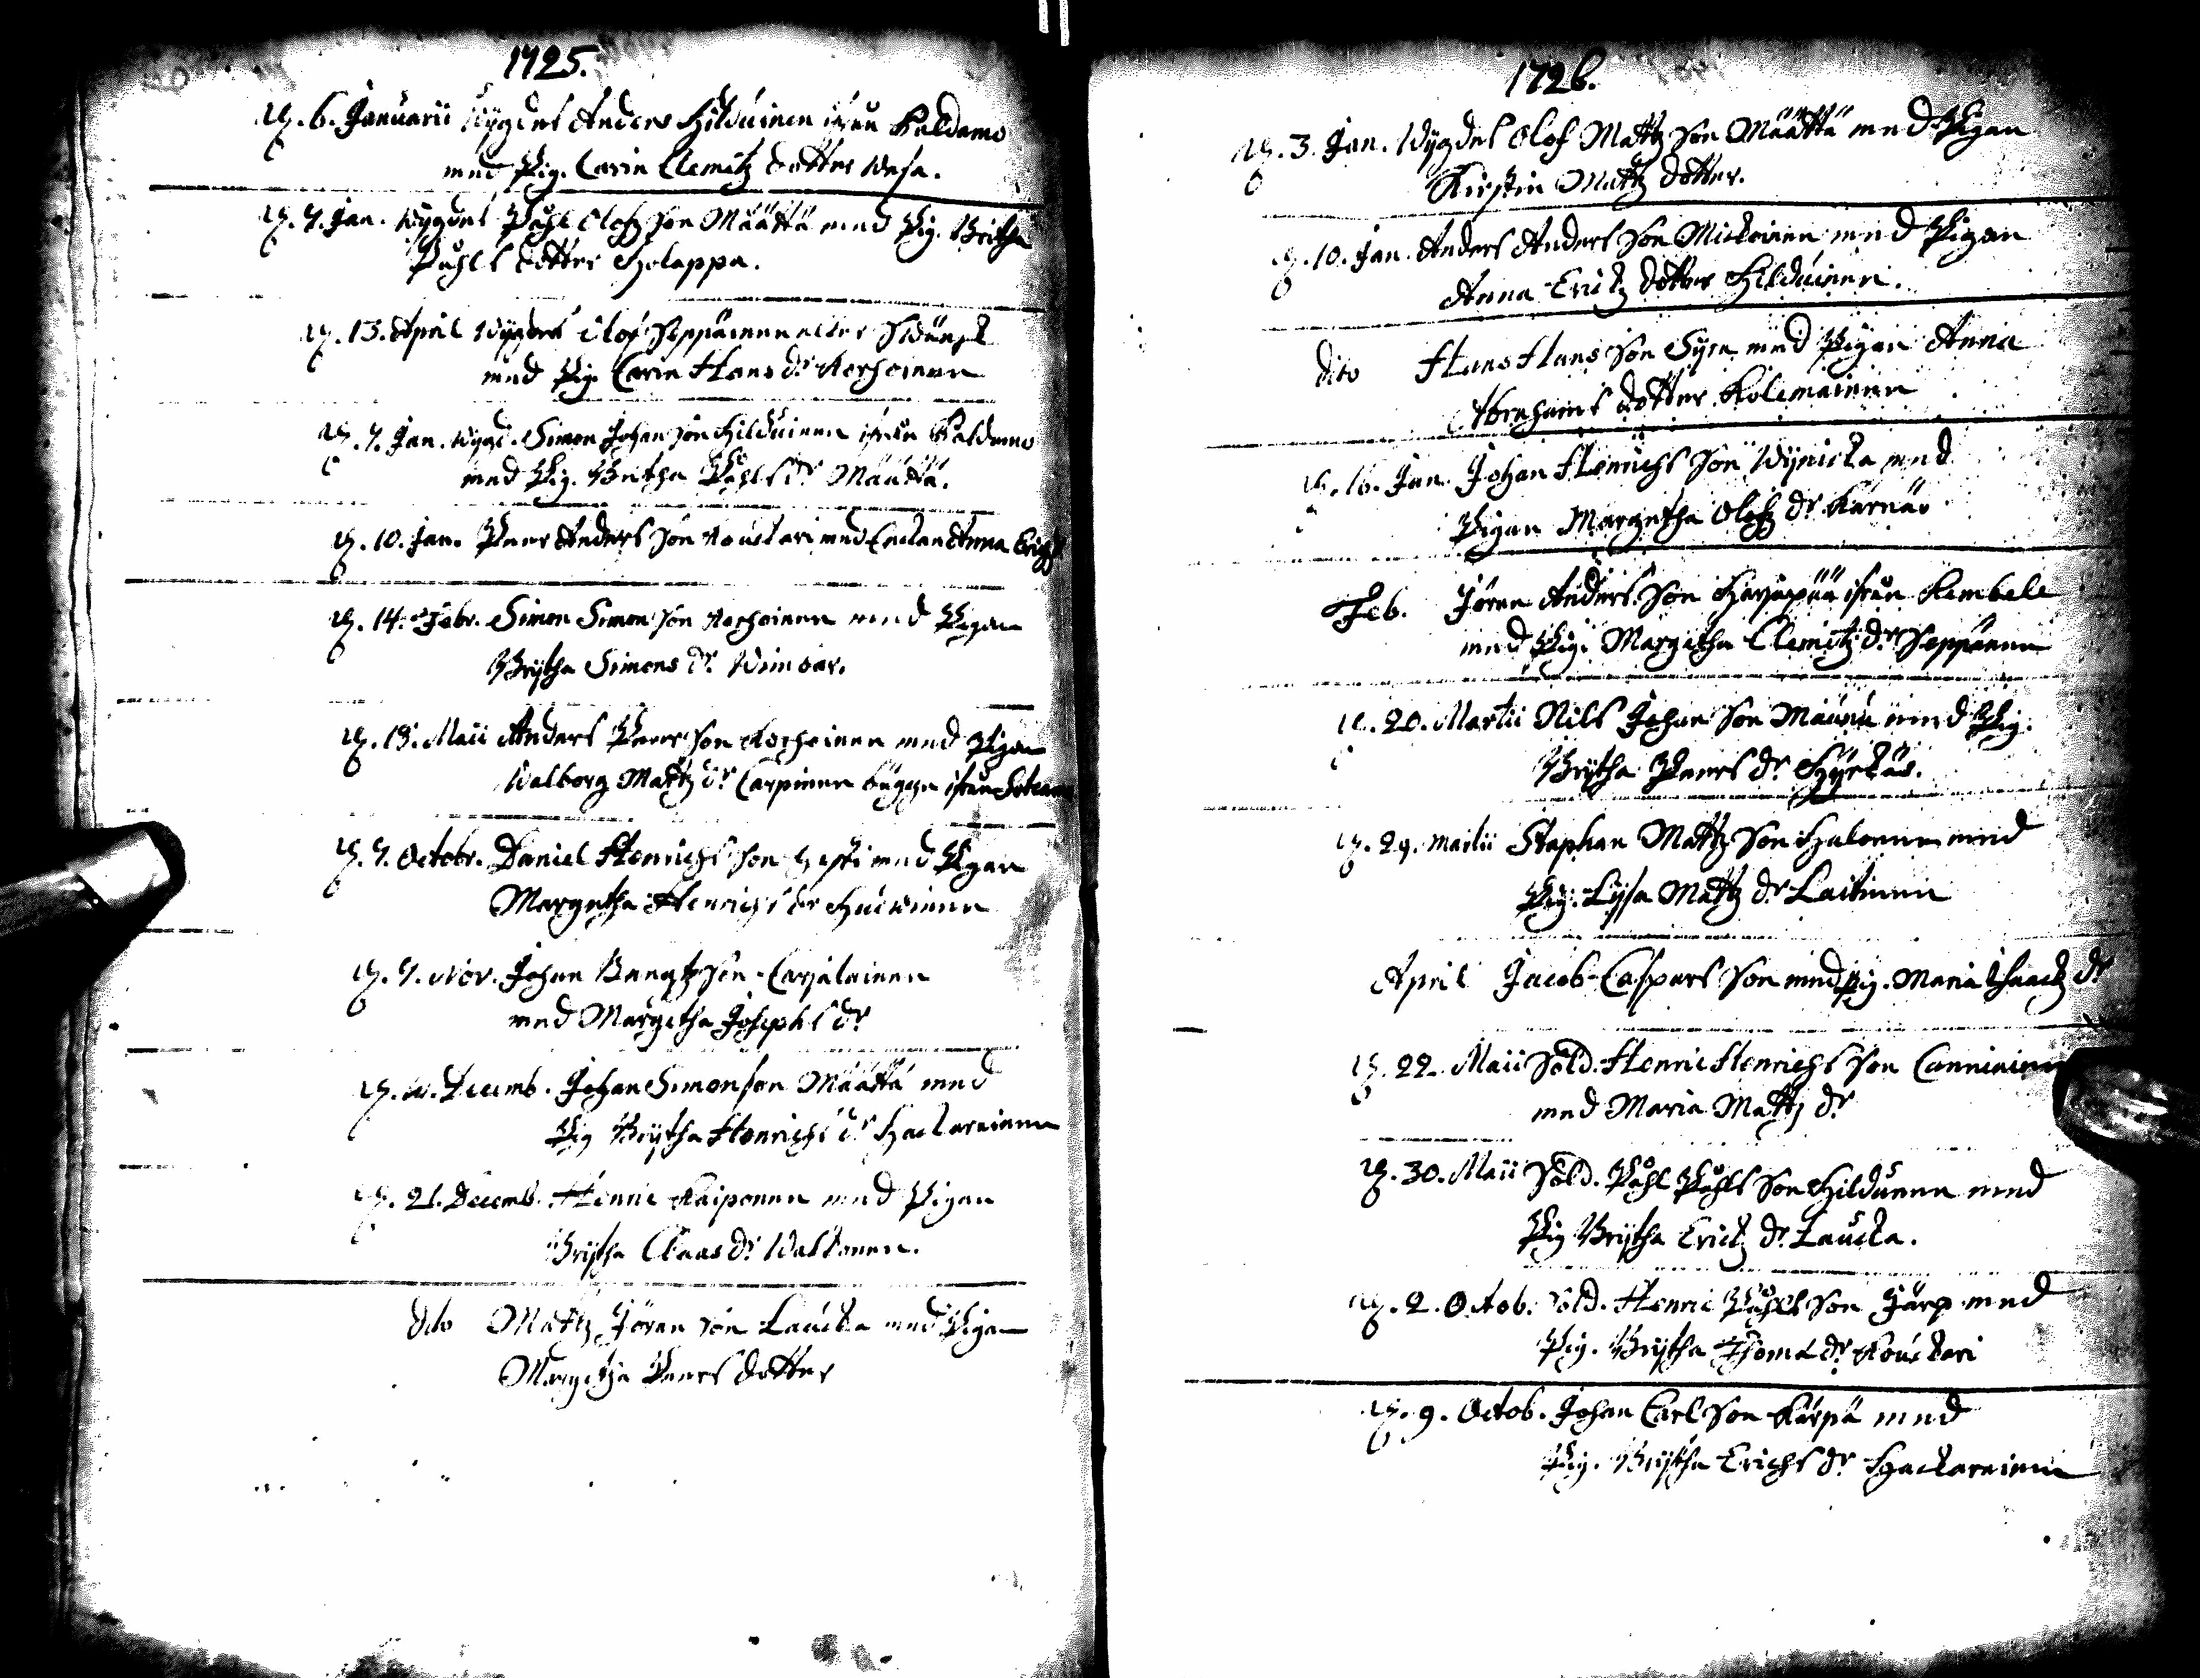 1725.
D. 6. Januarii Wygdes Anders Hilduinen ifrån Paldamo
med Pig. Carin Clemitz dotter Wesa.
D. 7. Jan. Wygdes Påhl Olofz son Määttä med Pig. Britha
Påhls dotter Holappa.
D. 13. April Wygdes Olof Seppäinen eller
med Pig. Carin Hans dr Korhoinen
D. 7. Jan. Wygd. Simon Johan son Hilduinen ifrån Paldamo
med Pig. Britha Påhls dr Määttä.
D. 10. Jan. Peer Anders son Kouckari med Enckan Anna
D. 14. Febr. Simon Simon son Korhoinen med Pigan
Brytha Simons dr Wimoar.
D. 13. Maii Anders Peer son Korhoinen med Pigan
Walborg Mattz dr Carpinen bägge ifrån
D. 7. Octobr. Daniel Henrichs son med Pigan
Margetha Henrichs dr
D. 7. Nov. Johan Bengtz son Carjalainen
med Margetha Josephs dr
D. Decemb. Johan Simonson Määttä med
Pig Brytha Henrichs dr Hackarainen
D. 21. Decemb. Henric Kaiponen med Pigan
Brytha Claas dr Walkonen.
dito Mattz Jöran son Laucka med Pigan
Margetha Peers dotter
1726.
D. 3. Jan. Wygdes Olof Mattz son Määttä med Pigan
Kirstin Mattz dotter.
D. 10. Jan. Anders Anders son Mickoinen med Pigan
Anna Erickz dotter Hilduinen.
dito Hans Hans son Syrn med Pigan Anna
Abrahams dotter Kolemainen
D. 16. Jan. Johan Henrichs son Wynicka med
Pigan Margetha Olofz dr Kärnäs
Feb. Jöran Anders son Harjapää ifrån Kembele
med Pig. Margetha Clemitz dr Seppänen
D. 20. Martii Nils Johan son Maunu med Pig.
Brytha Peers dr Hyrkäs.
D. 29. Martii Staphan Mattz son Halonen med
Pig. Lysa Mattz dr Laitinen
April Jacob Caspars son med Pig. Maria Isaackz dr
D. 22. Maii Sold. Henric Henrichs son
med Maria Mattz dr
D. 30. Maii Sold. Påhl Påhls son Hildunen med
Pig Brytha Erickz dr Laucka.
D. 2. Octob. Sold. Henric Påhls son Järp med
Pig. Brytha Thomæ dr Kouckari
D. 9. Octob. Johan Carl son Kärpä med
Pig. Brytha Erichs dr Hackarainen